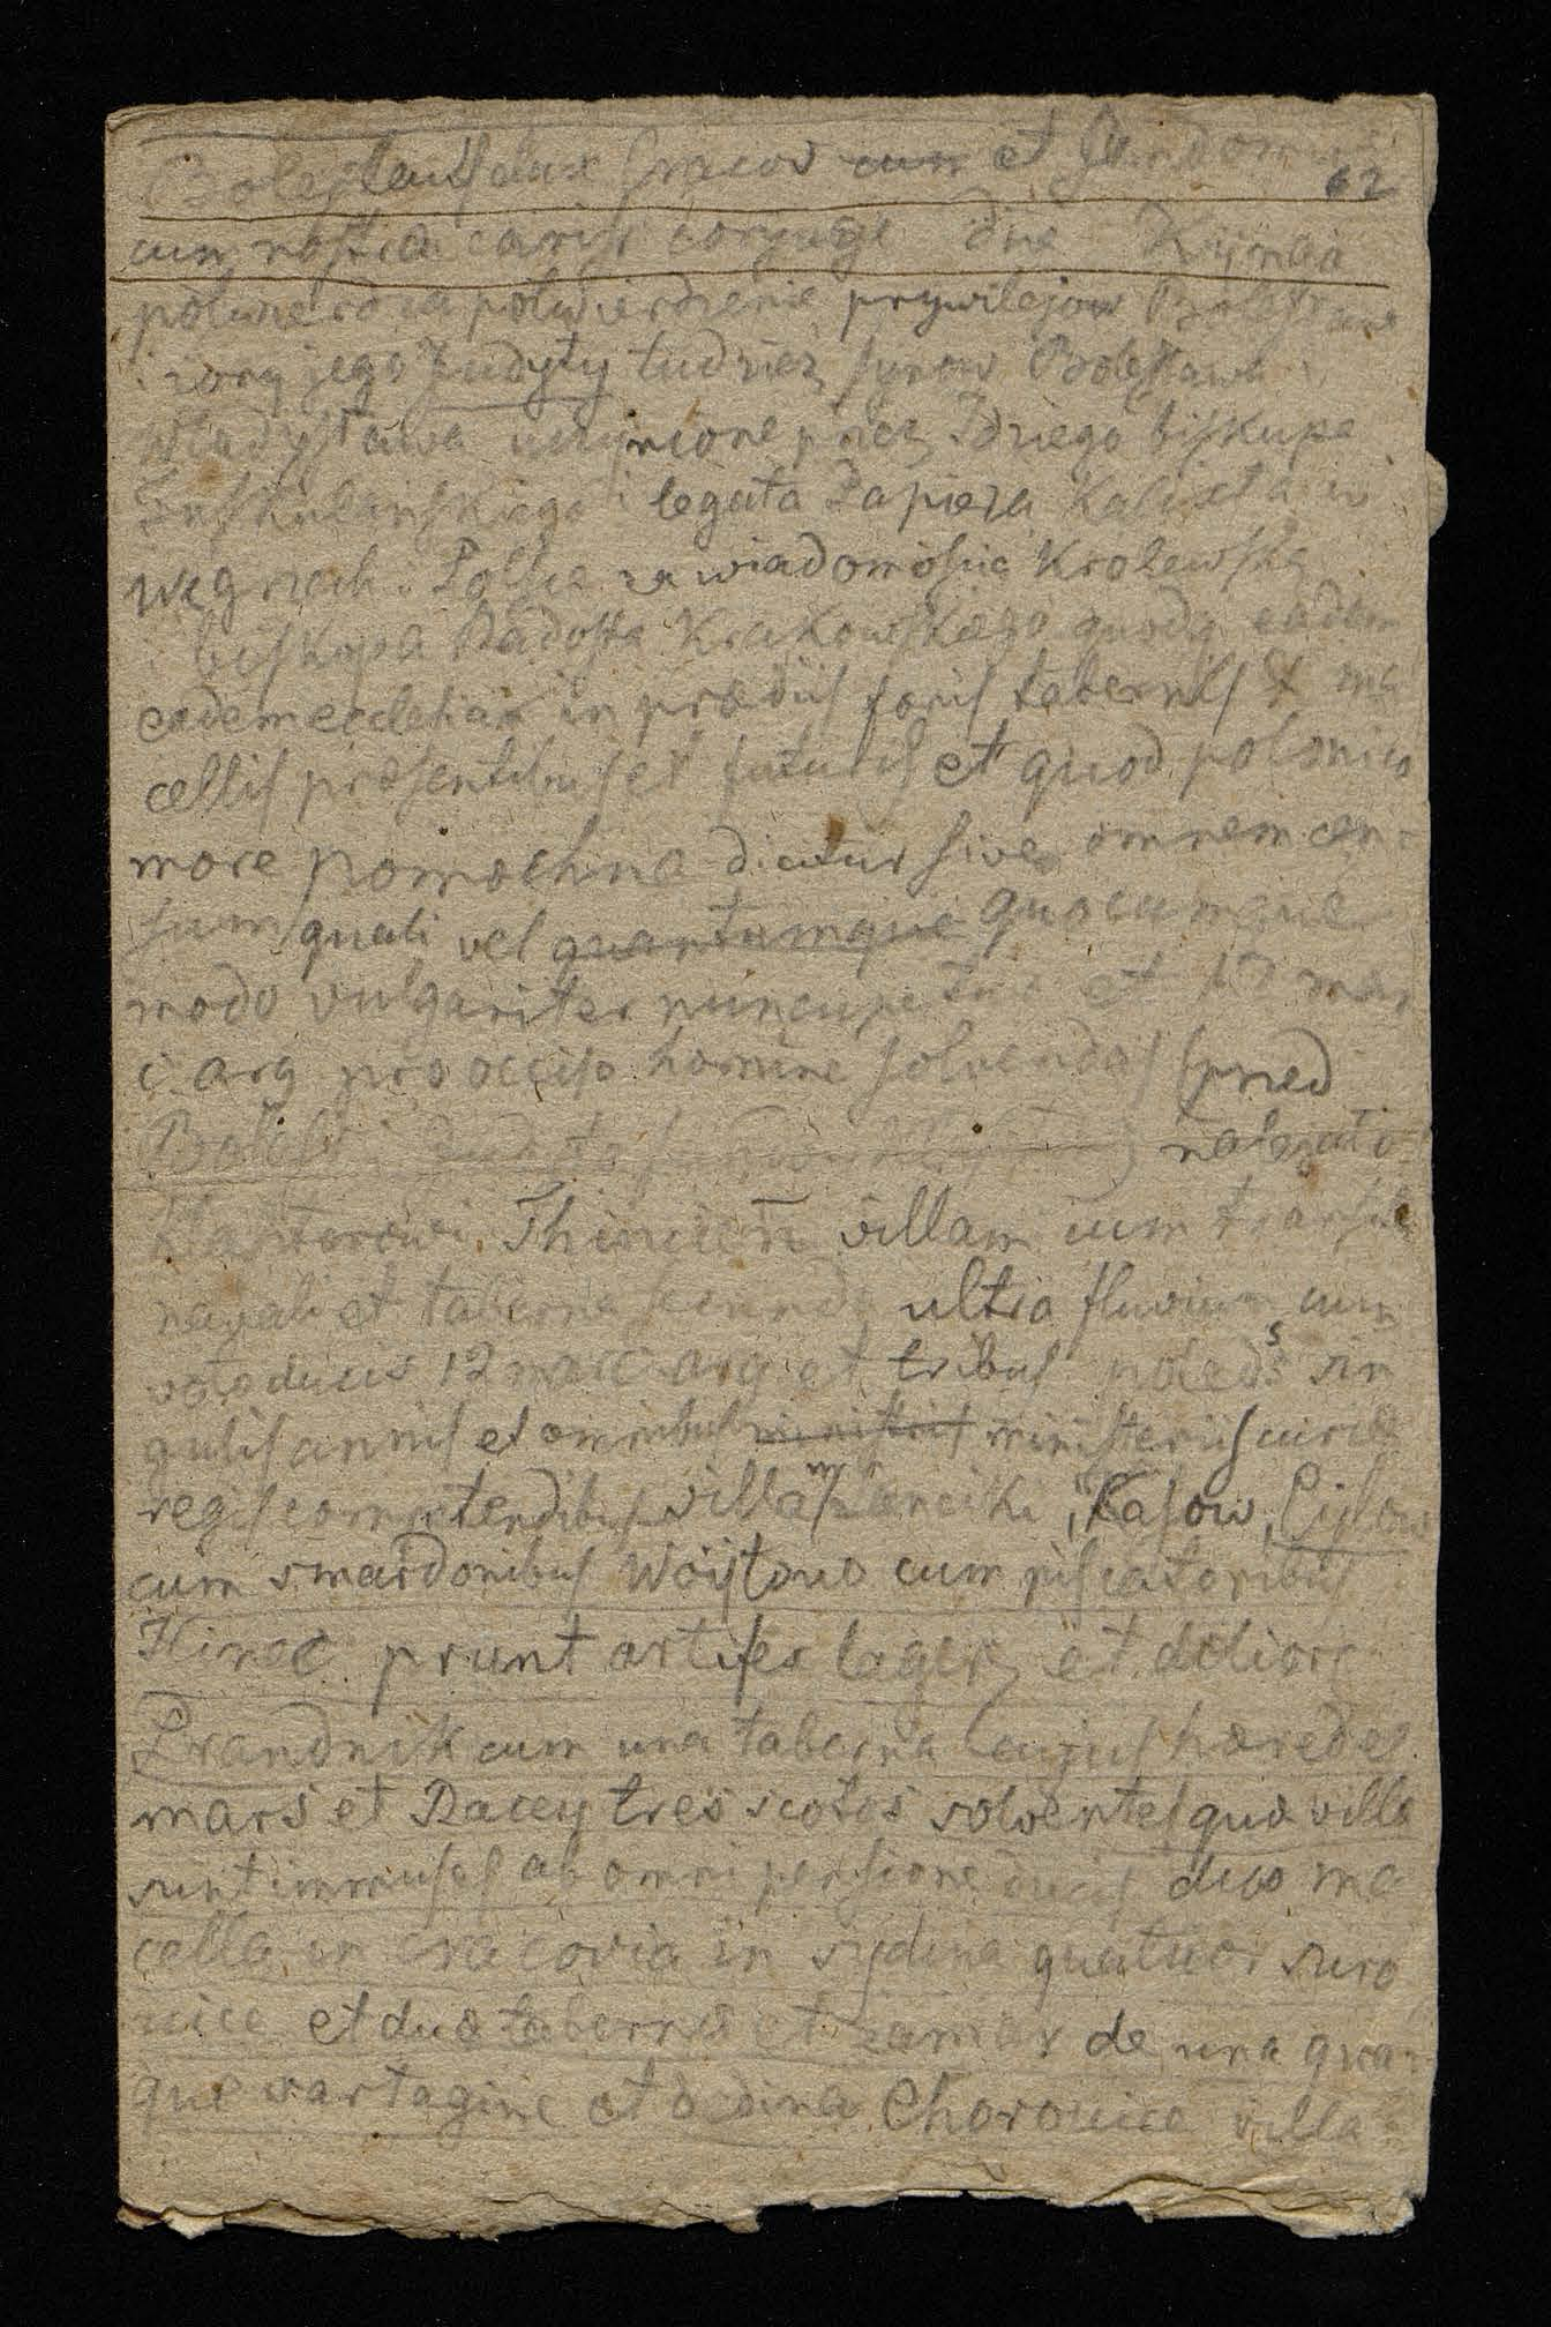 Boleslauſ dux Cracov ~~cum~~ et Sandom
62
cum noſtra cariſſ coniuge dne Kijnga
potwierdza potwierdzenie prywilejow Boleſława
i żony jego Judyty tudzież ſynow Boleſława i
Władyſława uczynione przez Idziego biſkupa
Tuſkulanſkiego i legata Papieża Kalixta w
Węgrzech i Polſce za wiadomoſcią Krolewſką
i biſkupa Radoſta Krakowſkiego quodq eadem
eadem eccleſia in prædiis foris tabernis & ma
cellis præſentibus et futuris et quod polonico
more pomochne dicitur ſive omnem cen-
ſum quali vel ~~quantumque~~ quocumque
modo vulgariter nuncupetur et 12 mar
c. arg pro occiſo homine ſolvendas (przed
Boleſł nalezato
klasztorowi Thincien villam cum tranſitu
navali et taberna ultra fluvium cum
voto ducis 12 marc arg et tribus poledris sin
gulis annis et omnibus ~~miniſtris~~ miniſteriis curiæ
regis villam Kaſow, Ciſſow
cum smardonibus Woijtowo cum piſcatoribus
et
Prandnik cum una taberna cujus hæredes
mars et Racey tres scotos solventes quæ villæ
sunt immunes ab omni penſione ducis duo ma
cella in cracovia in sydina quatuor suro
vice et duæ tabernæ et de una qua-
que sartagine et Chorouice villa